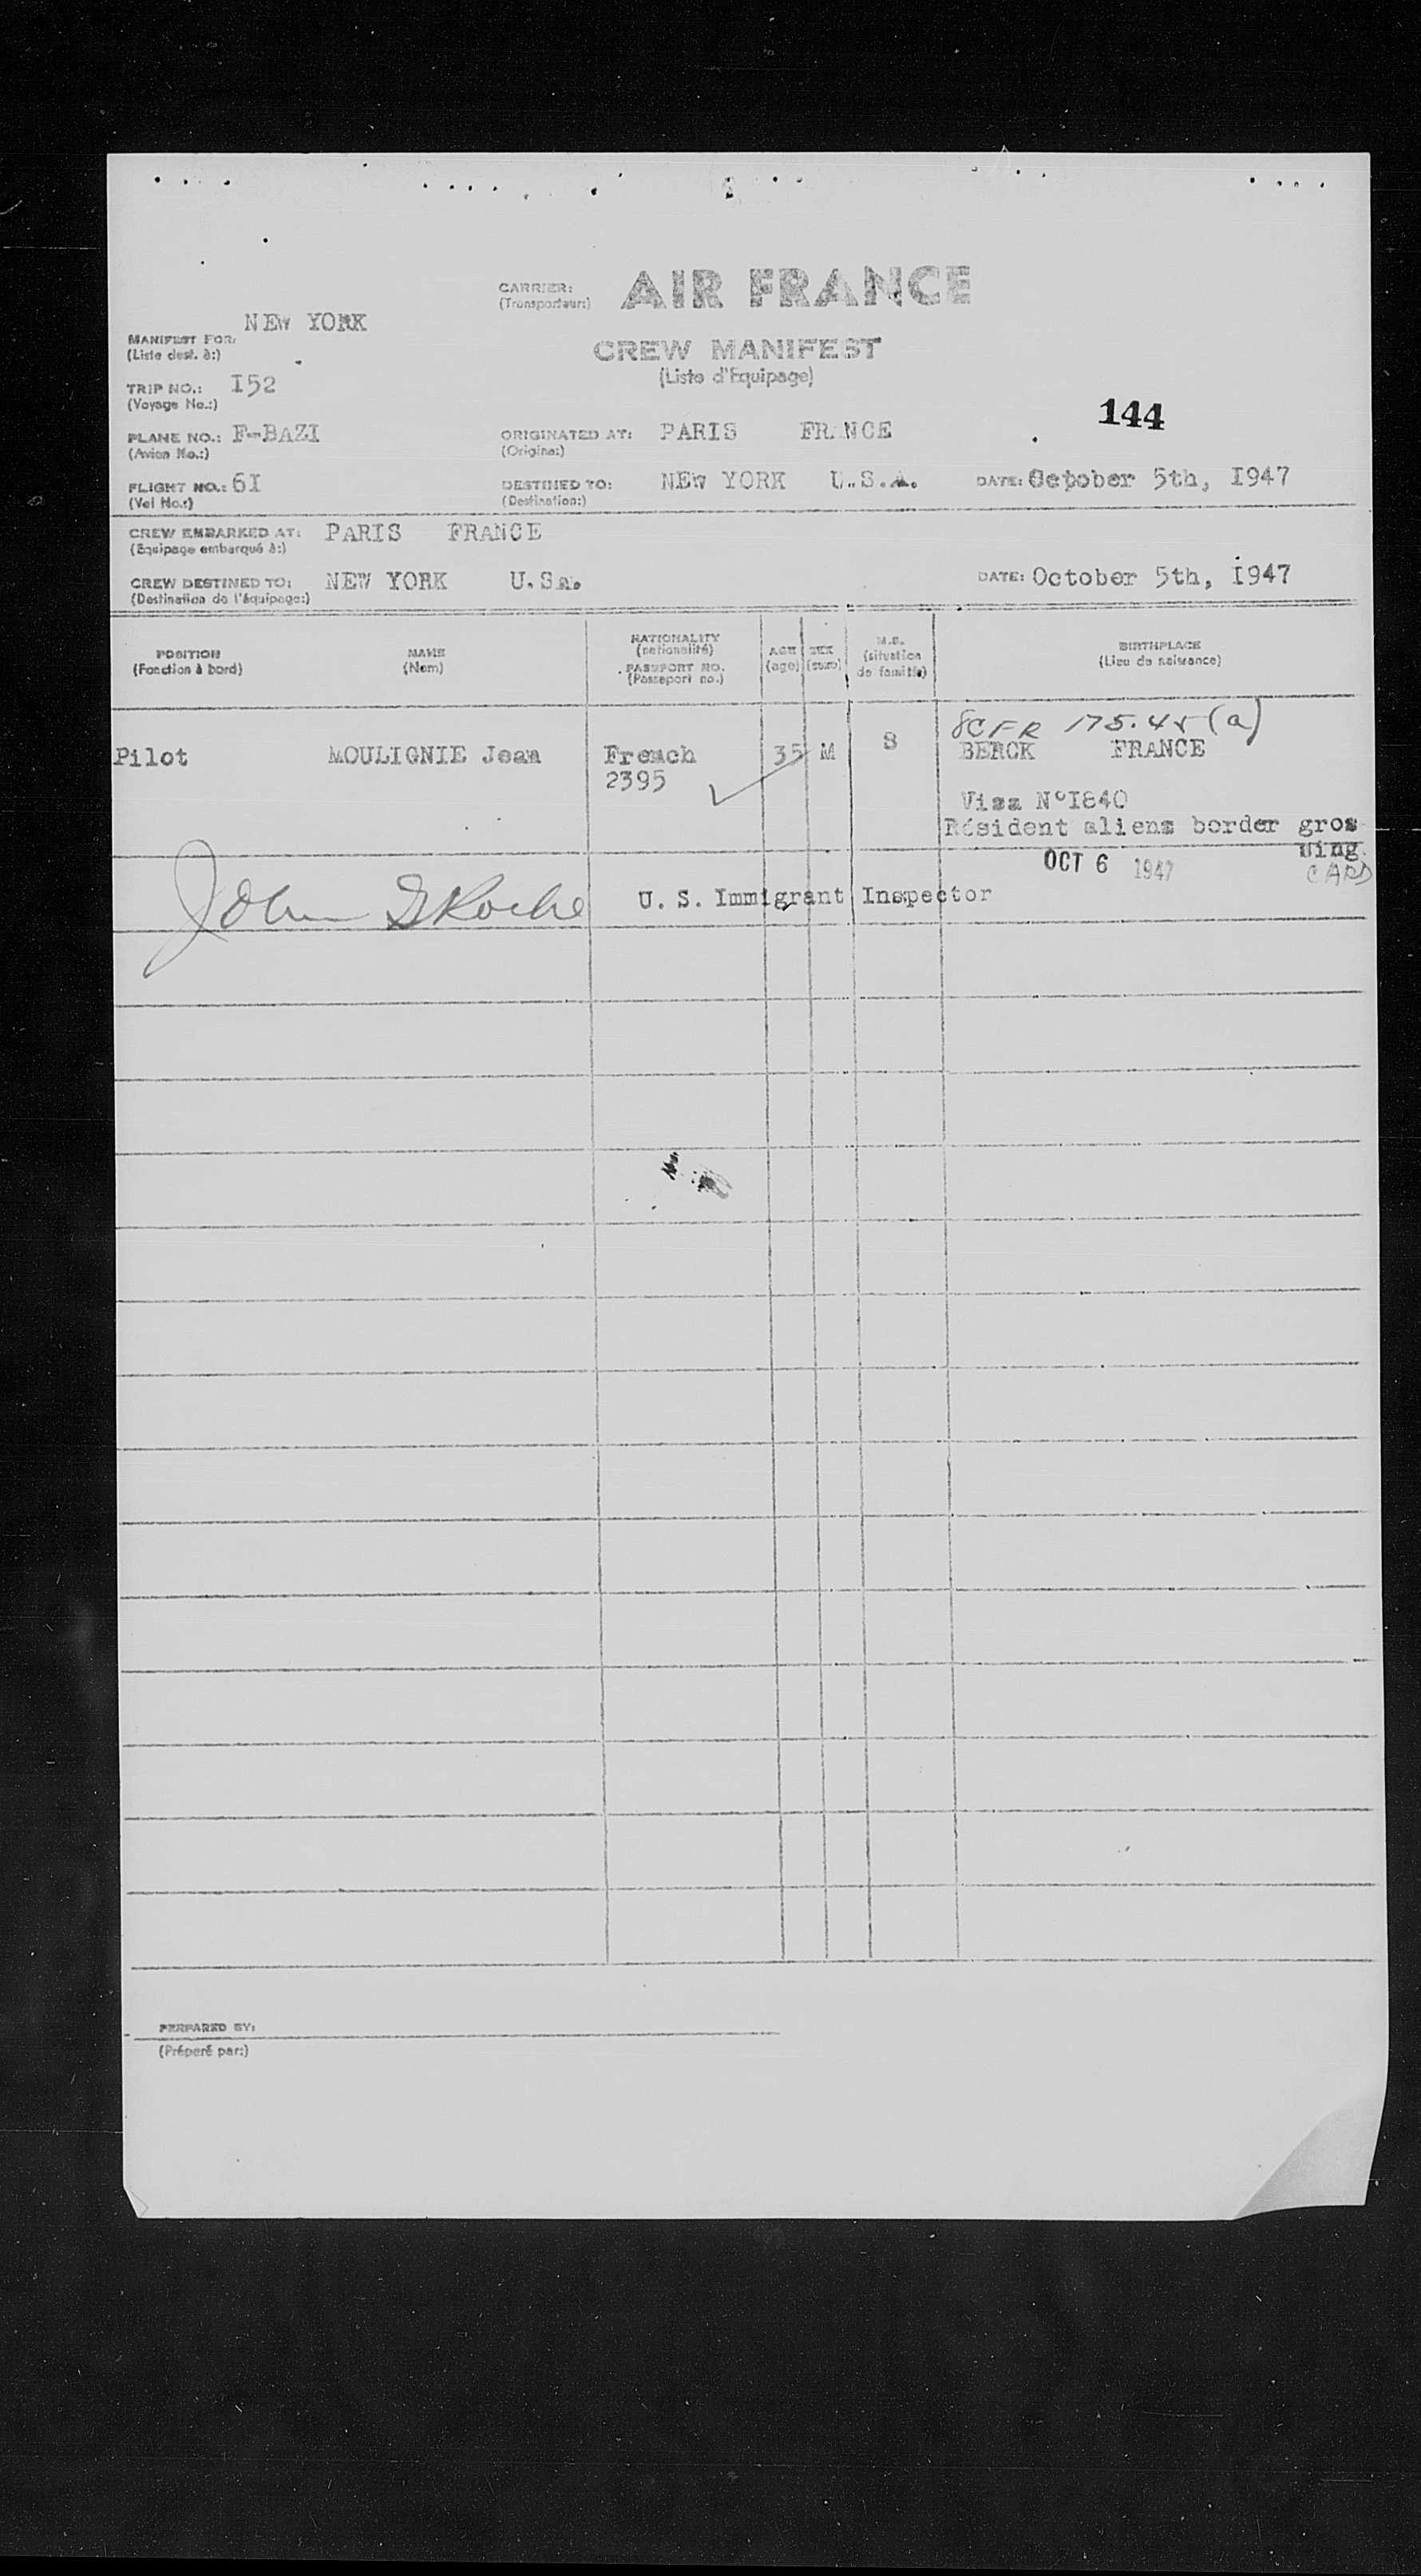 CARRIER: AIR FRANCE
(Transporteur:)
NEW YORK
MANIFEST FOR:
(Liste dest. à:)
CREW MANIFEST
(Liste d'Equipage)
TRIP NO.: I52
(Voyage No.:)
144
PLANE NO.: F-BAZI
(Avion No.:)
ORIGINATED AT: PARIS FRANCE
(Origine:)
FLIGHT NO.: 6I
(Vol No.:)
DESTINED TO: NEW YORK U.S.A.
(Destination:)
DATE: October 5th, I947
CREW EMBARKED AT: PARIS FRANCE
(Equipage embarqué à:)
CREW DESTINED TO: NEW YORK U.SA.
(Destination de l'équipage:)
DATE: October 5th, I947
POSITION
(Fonction à bord)
NAME
(Nom)
NATIONALITY
(nationalité)
PASSPORT NO.
(Passeport no.)
AGE
(age)
SEX
(sexe)
M.S.
(situation
de famille)
BIRTHPLACE
(Lieu de naissance)
8CFR 175.45(a)
Pilot MOULIGNIE Jean French 35 M S BERCK FRANCE
2395
Visa N°I840
Résident aliens border gros
sing.
OCT 6 1947
CARD
John G Roche U. S. Immigrant Inspector
PERPARED BY:
(Préparé par:)